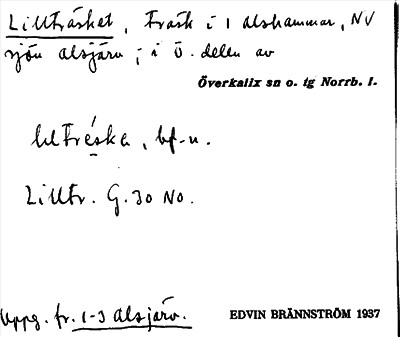 Lillträsket, träsk i 1 alshammar, NV
sjön alsjärv; i ö. delen av
Överkalix sn o. tg Norrb. l.
lɩltrèska, bf-n.
Lilltr. G. 30 NO.
Uppg. fr. 1-3 alsjärv.
EDVIN BRÄNNSTRÖM 1937